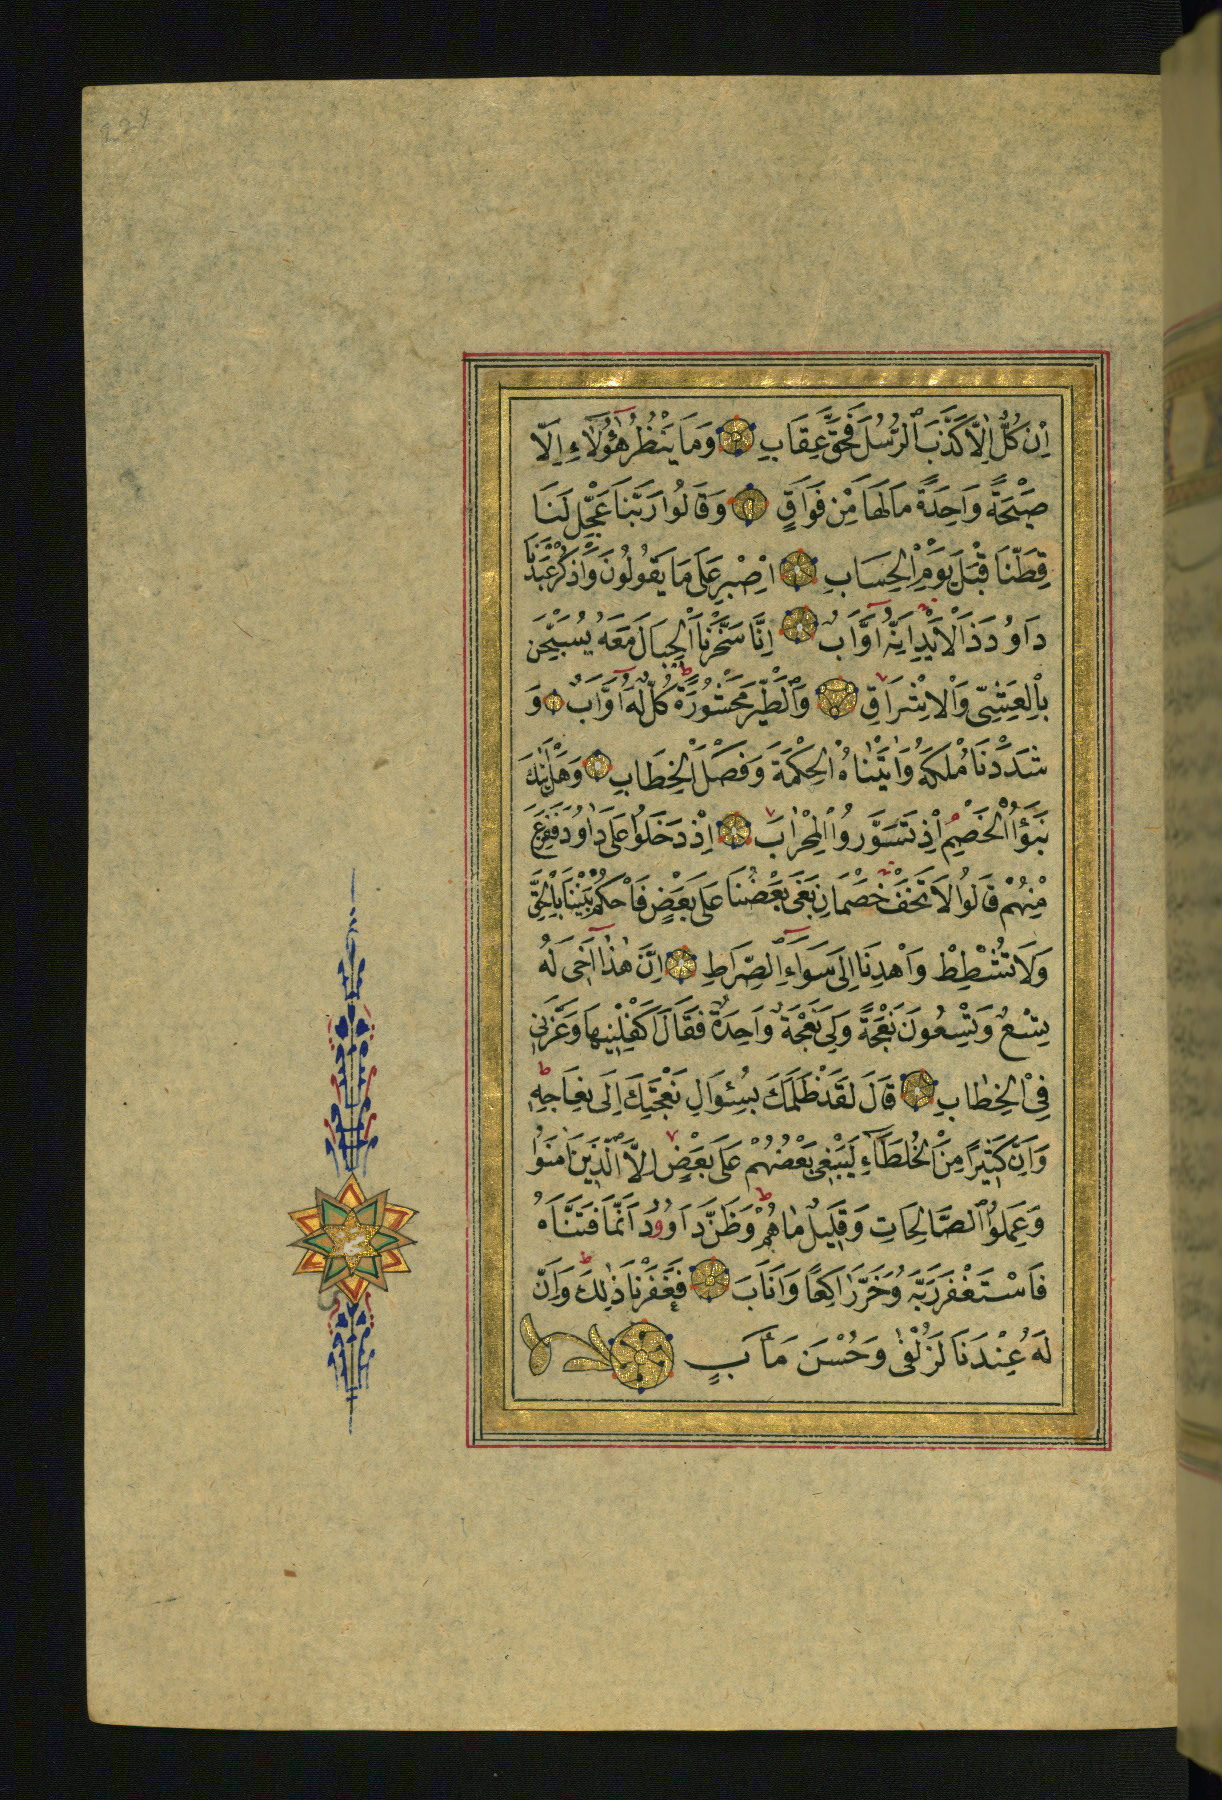 اِنْ كُلٌّ اِلَّا كَذَّبَ الرُّسُلَ فَحَقَّ عِقَابِ وَمَا يَنْظُرُ هٰٓؤُلَٓاءِ اِلَّا
صَيْحَةً وَاحِدَةً مَا لَهَا مِنْ فَوَاقٍ وَقَالُوا رَبَّنَا عَجِّلْ لَنَا
قِطَّنَا قَبْلَ يَوْمِ الْحِسَابِ اِصْبِرْ عَلٰى مَا يَقُولُونَ وَاذْكُرْ عَبْدَنَا
دَاوُدَ ذَا الْاَيْدِ اِنَّهُ اَوَّابٌ اِنَّا سَخَّرْنَا الْجِبَالَ مَعَهُ يُسَبِّحْنَ
بِالْعَشِيِّ وَالْاِشْرَاقِ وَالطَّيْرَ مَحْشُورَةً كُلٌّ لَهُ اَوَّابٌ وَ
شَدَدْنَا مُلْكَهُ وَاٰتَيْنَاهُ الْحِكْمَةَ وَفَصْلَ الْخِطَابِ وَهَلْ اَتٰيكَ
نَبَؤُا الْخَصْمِ اِذْ تَسَوَّرُوا الْمِحْرَابَ اِذْ دَخَلُوا عَلٰى دَاوُدَ فَفَزِعَ
مِنْهُمْ قَالُوا لَا تَخَفْ خَصْمَانِ بَغٰى بَعْضُنَا عَلٰى بَعْضٍ فَاحْكُمْ بَيْنَنَا بِالْحَقِّ
وَلَا تُشْطِطْ وَاهْدِنَا اِلٰى سَوَٓاءِ الصِّرَاطِ اِنَّ هٰذَا اَخِي لَهُ
تِسْعٌ وَتِسْعُونَ نَعْجَةً وَلِيَ نَعْجَةٌ وَاحِدَةٌ فَقَالَ اَكْفِلْنِيهَا وَعَزَّنِي
فِي الْخِطَابِ قَالَ لَقَدْ ظَلَمَكَ بِسُؤَالِ نَعْجَتِكَ اِلٰى نِعَاجِهِ
وَاِنَّ كَثِيرًا مِنَ الْخُلَطَٓاءِ لَيَبْغِي بَعْضُهُمْ عَلٰى بَعْضٍ اِلَّا الَّذِينَ اٰمَنُوا
وَعَمِلُوا الصَّالِحَاتِ وَقَلِيلٌ مَا هُمْ وَظَنَّ دَاوُودُ اَنَّمَا فَتَنَّاهُ
فَاسْتَغْفَرَ رَبَّهُ وَخَرَّ رَاكِعًا وَاَنَابَ فَغَفَرْنَا لَهُ ذٰلِكَ وَاِنَّ
لَهُ عِنْدَنَا لَزُلْفٰى وَحُسْنَ مَاٰبٍ